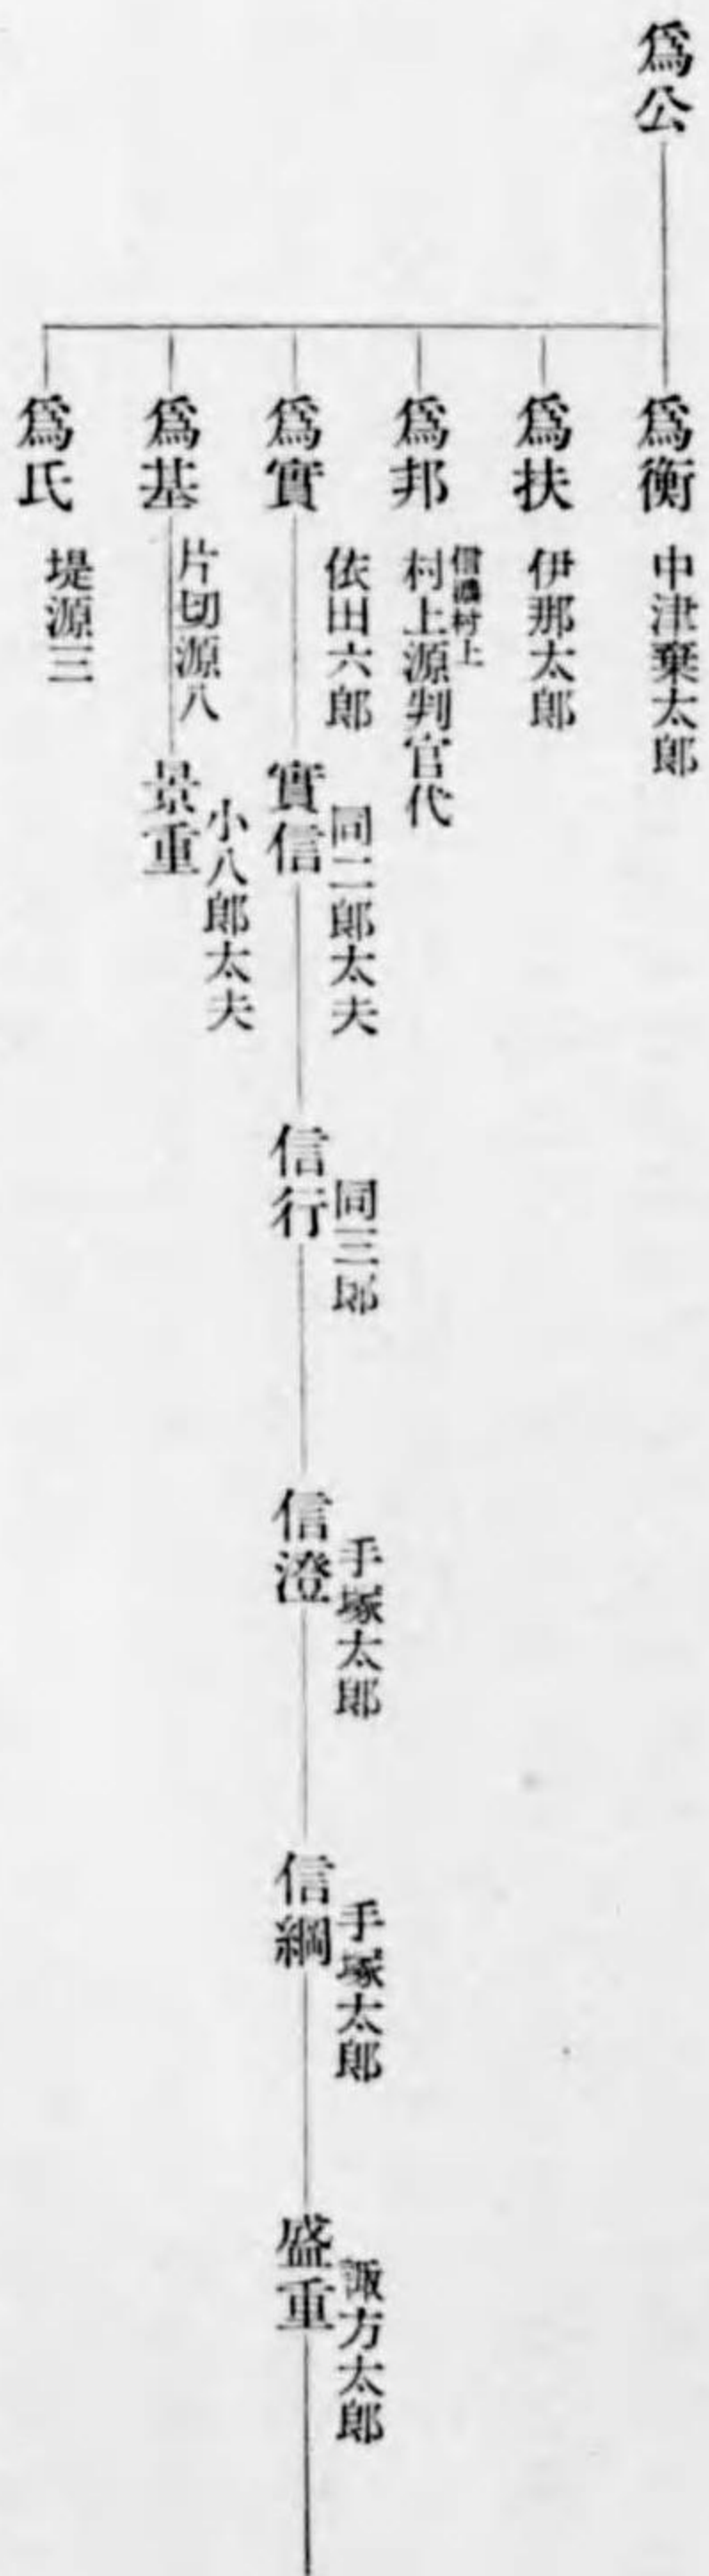 爲公
爲衡
中津棄太郎
爲扶
伊那太郎
爲邦
信濃村上
村上源判官代
爲實
依田六郎
實信
同二郎太夫
信行
同三郎
信澄
手塚太郎
信綱
手塚太郎
盛重
諏方太郎
爲基
片切源八
景重
小八郎太夫
爲氏
堤源三